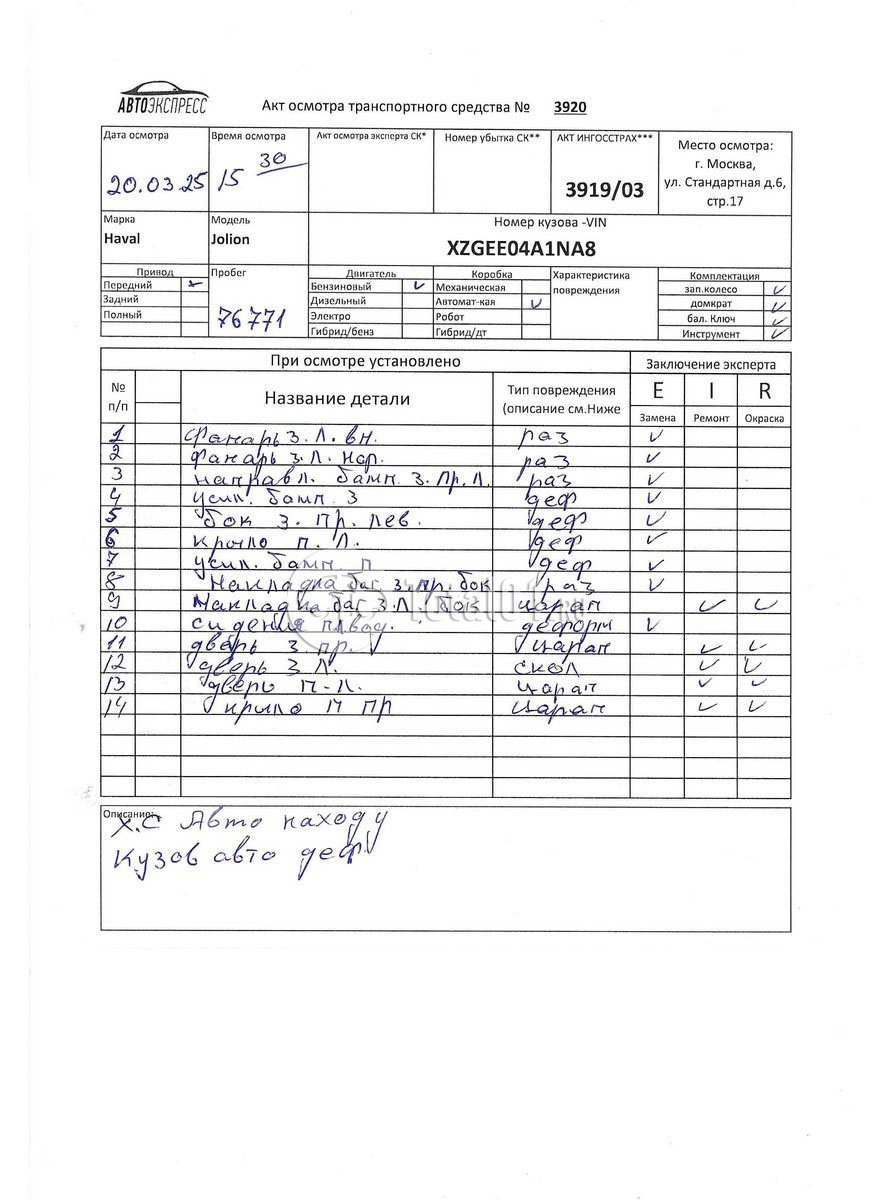 АВТОЭКСПРЕСС
Акт осмотра транспортного средства № 3920
Дата осмотра Время осмотра Акт осмотра эксперта СК* Номер убытка СК** АКТ ИНГОССТРАХ*** Место осмотра:
г. Москва,
ул. Стандартная д.6,
стр.17
20.03.25 15 30 3919/03
Марка Модель Номер кузова -VIN
Haval Jolion XZGEE04A1NA8
Привод Пробег Двигатель Коробка Характеристика Комплектация
Передний Бензиновый ✓ Механическая повреждения зап.колесо ✓
Задний Дизельный Автомат-кая ✓ домкрат ✓
Полный 76771 Электро Робот бал. Ключ ✓
Гибрид/бенз Гибрид/дт Инструмент ✓
При осмотре установлено Заключение эксперта
№ п/п Название детали Тип повреждения (описание см.Ниже E I R
Замена Ремонт Окраска
1 Фанарь З. Л. вн. раз ✓
2 фанарь З. Л. нар. раз ✓
3 направл. бамп. З. Пр. Л. раз ✓
4 усил. бамп З деф ✓
5 бок З. пр. лев. деф ✓
6 крыло П. Л. деф ✓
7 усил. бамп. П деф ✓
8 Накладка баг. З. пр. бок раз ✓
9 Накладка баг З. Л. бок царап ✓ ✓
10 сидения деформ ✓
11 дверь З пр. царап ✓ ✓
12 дверь З Л. скол ✓ ✓
13 дверь П-Л. царап ✓ ✓
14 крыло П ПР царап ✓ ✓
Описание:
Х.С Авто находу
Кузов авто деф
Total01.ru